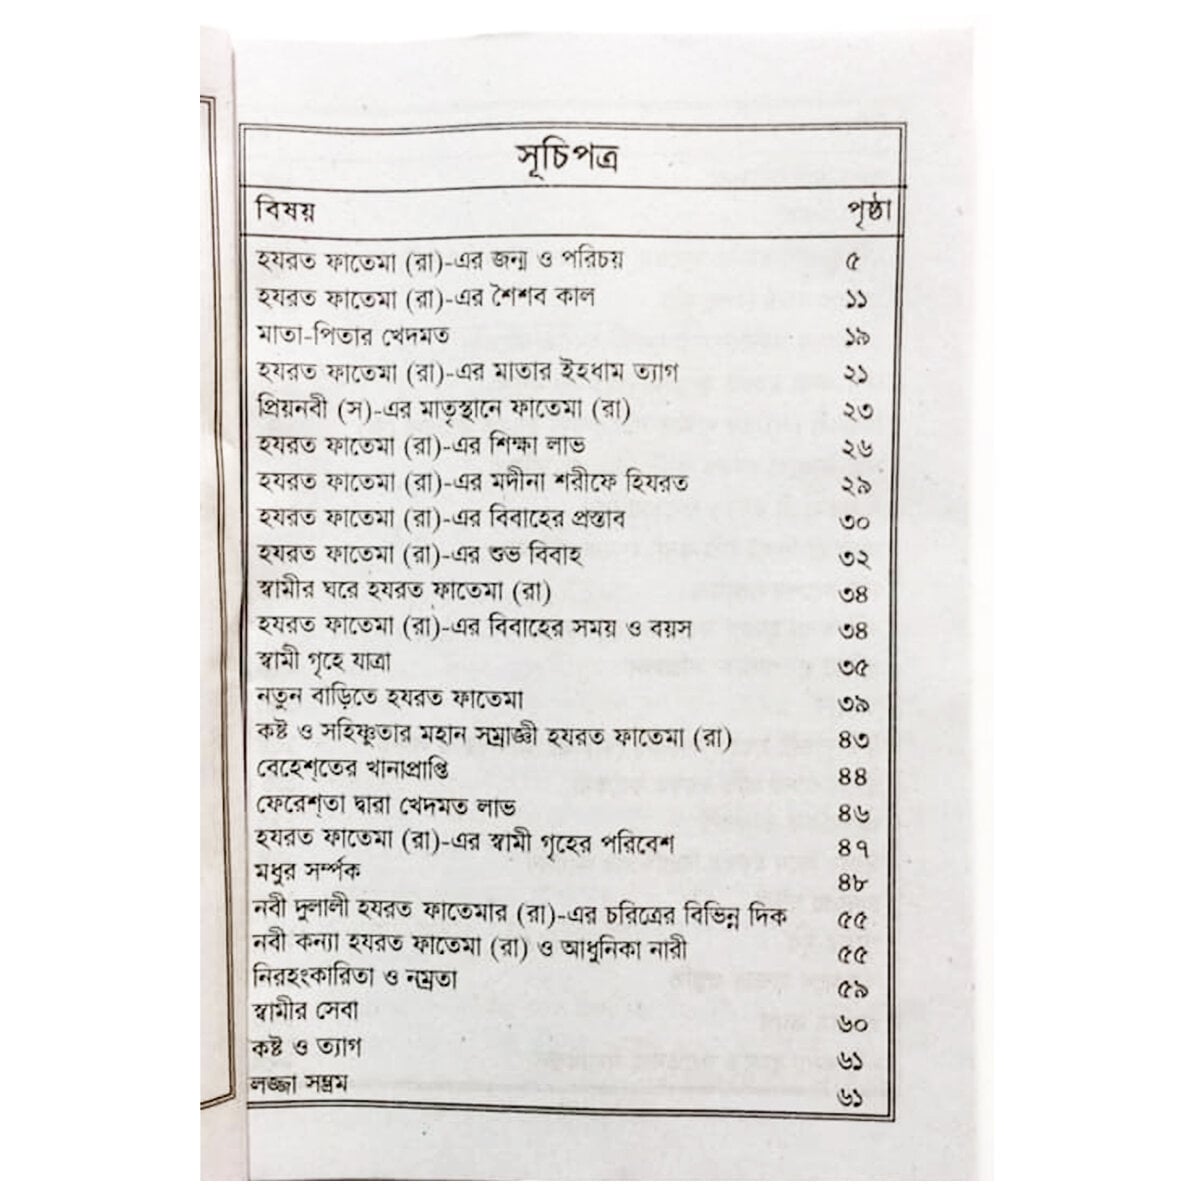 সূচিপত্র
বিষয় পৃষ্ঠা
হযরত ফাতেমা (রা)-এর জন্ম ও পরিচয় ৫
হযরত ফাতেমা (রা)-এর শৈশব কাল ১১
মাতা-পিতার খেদমত ১৯
হযরত ফাতেমা (রা)-এর মাতার ইহধাম ত্যাগ ২১
প্রিয়নবী (স)-এর মাতৃস্থানে ফাতেমা (রা) ২৩
হযরত ফাতেমা (রা)-এর শিক্ষা লাভ ২৬
হযরত ফাতেমা (রা)-এর মদীনা শরীফে হিযরত ২৯
হযরত ফাতেমা (রা)-এর বিবাহের প্রস্তাব ৩০
হযরত ফাতেমা (রা)-এর শুভ বিবাহ ৩২
স্বামীর ঘরে হযরত ফাতেমা (রা) ৩৪
হযরত ফাতেমা (রা)-এর বিবাহের সময় ও বয়স ৩৪
স্বামী গৃহে যাত্রা ৩৫
নতুন বাড়িতে হযরত ফাতেমা ৩৯
কষ্ট ও সহিষ্ণুতার মহান সম্রাজ্ঞী হযরত ফাতেমা (রা) ৪৩
বেহেশ্‌তের খানাপ্রাপ্তি ৪৪
ফেরেশ্‌তা দ্বারা খেদমত লাভ ৪৬
হযরত ফাতেমা (রা)-এর স্বামী গৃহের পরিবেশ ৪৭
মধুর সর্ম্পক ৪৮
নবী দুলালী হযরত ফাতেমার (রা)-এর চরিত্রের বিভিন্ন দিক ৫৫
নবী কন্যা হযরত ফাতেমা (রা) ও আধুনিকা নারী ৫৫
নিরহংকারিতা ও নম্রতা ৫৯
স্বামীর সেবা ৬০
কষ্ট ও ত্যাগ ৬১
লজ্জা সম্ভ্রম ৬১